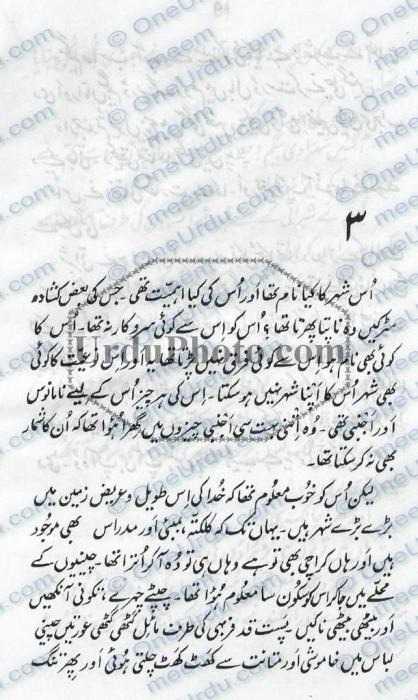 ۳
اُس شہر کا کیا نام تھا اور اُس کی کیا اہمیت تھی۔ جس کی بعض کشادہ
سڑکیں وہ ناپتا پھرتا تھا؟ اُس کو اس سے کوئی سروکار نہ تھا۔ اِس کا
کوئی بھی نام ہو اس سے کوئی فرق نہیں پڑتا تھا۔ اور اِس وقت کا کوئی
بھی شہر اُس کا اپنا شہر نہیں ہو سکتا۔ اِس کی ہر چیز اُس کے لیئے نامانوس
اور اجنبی تھی۔ وُہ اِتنی بہت سی اجنبی چیزوں میں گھرا ہُوا تھا کہ اُن کا شمار
بھی نہ کر سکتا تھا۔
لیکن اُس کو خوب معلوم تھا کہ خُدا کی اِس طویل و عریض زمین میں
بڑے بڑے شہر ہیں۔ یہاں تک کہ کلکتہ، بمبئی اور مدراس بھی موجُود
ہیں اور ہاں کراچی بھی تو ہے وہاں ہی تو وُہ آ کر اُترا تھا۔ چینیوں کے
محلّے میں جا کر اس کو سکُون سا معلوم ہُوا تھا۔ چپٹے چہرے، تکونی آنکھیں
اور بیٹھی بیٹھی ناکیں۔ پست قد فربہی کی طرف مائل گٹھی گٹھی عورتیں چینی
لباس میں خاموشی اور متانت سے کھٹ کھٹ چلتی ہُوئی اور پھر تنگ
UrduPhoto.com
© OneUrdu.com
meem